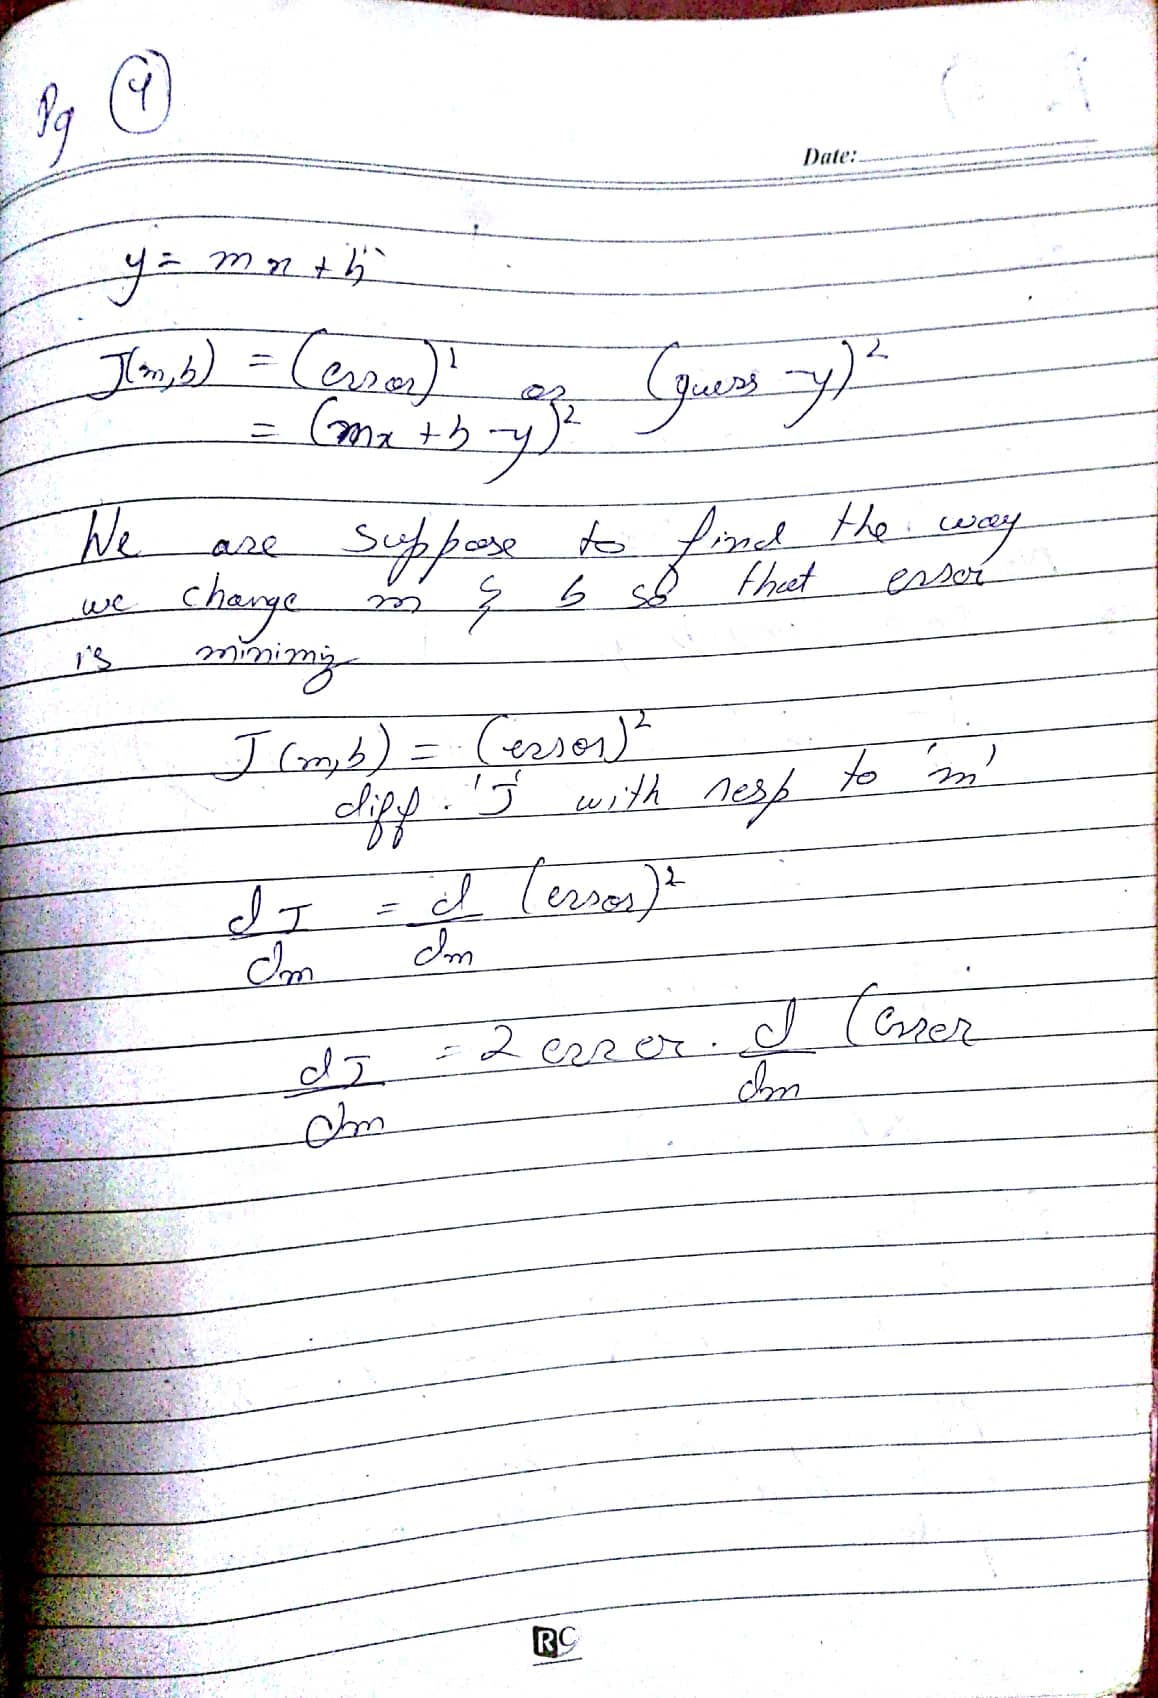 Pg 4
Date:
y = mx + b
J(m,b) = (error)² or (guess - y)²
= (mx + b - y)²
We are suppose to find the way
we change m & b so that error
is minimiz
J(m,b) = (error)²
diff. 'J' with resp to 'm'
dJ/dm = d/dm (error)²
dJ/dm = 2 error . d/dm (error
RC